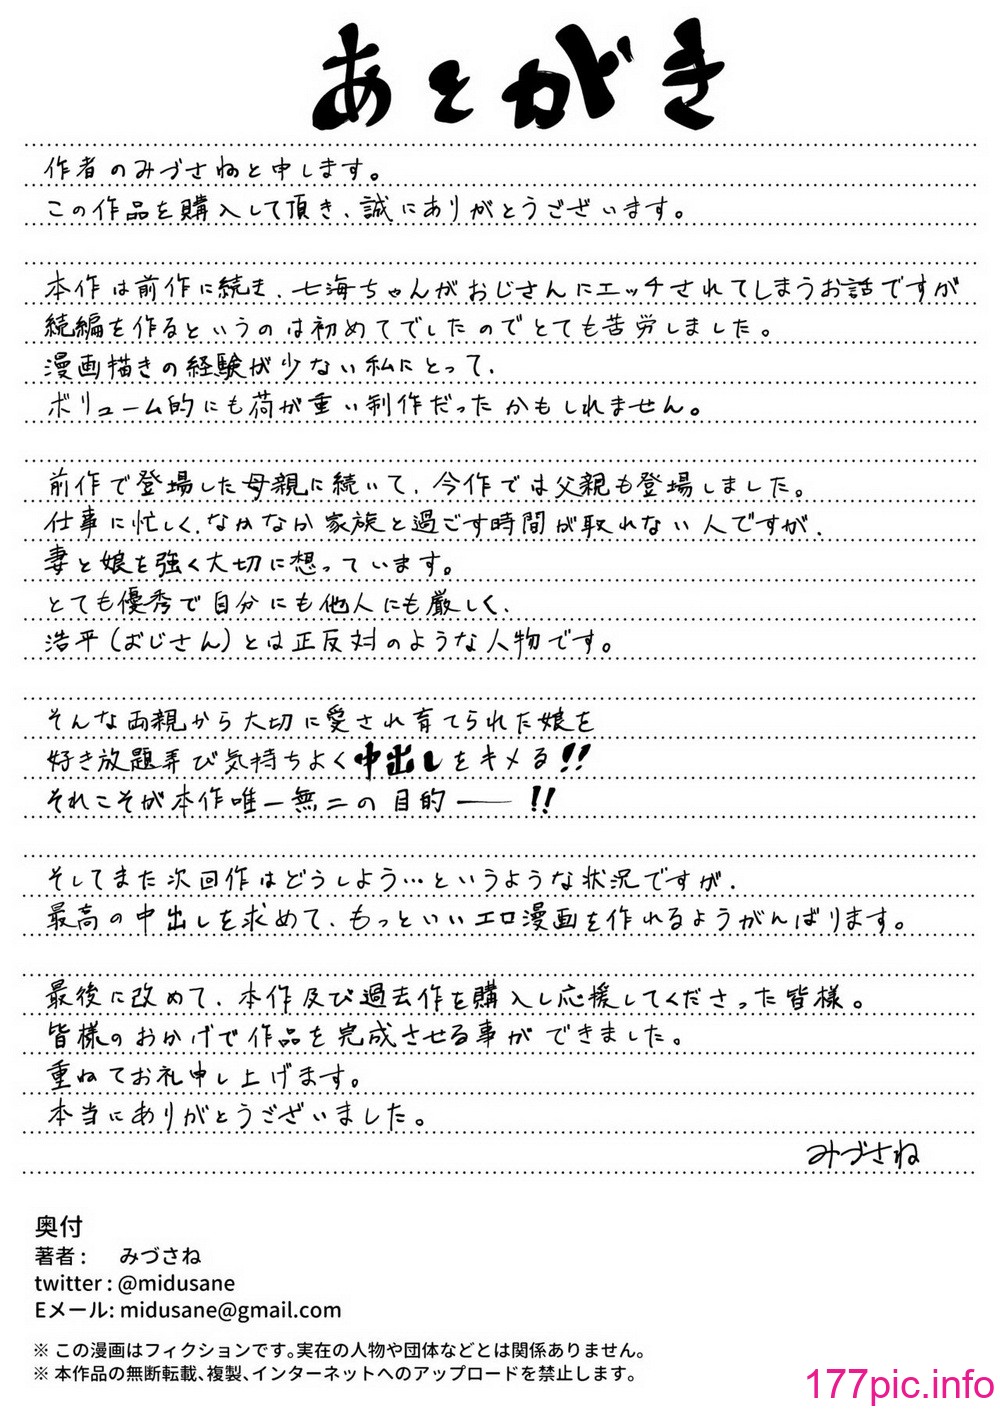 あとがき
作者のみづさねと申します。
この作品を購入して頂き、誠にありがとうございます。
本作は前作に続き、七海ちゃんがおじさんにエッチされてしまうお話ですが
続編を作るというのは初めてでしたのでとても苦労しました。
漫画描きの経験が少ない私にとって、
ボリューム的にも荷が重い制作だったかもしれません。
前作で登場した母親に続いて、今作では父親も登場しました。
仕事に忙しく、なかなか家族と過ごす時間が取れない人ですが、
妻と娘を強く大切に想っています。
とても優秀で自分にも他人にも厳しく、
浩平(おじさん)とは正反対のような人物です。
そんな両親から大切に愛され育てられた娘を
好き放題弄び気持ちよく中出しをキメる!!
それこそが本作唯一無二の目的――!!
そしてまた次回作はどうしよう…というような状況ですが、
最高の中出しを求めて、もっといいエロ漫画を作れるようがんばります。
最後に改めて、本作及び過去作を購入し応援してくださった皆様。
皆様のおかげで作品を完成させる事ができました。
重ねてお礼申し上げます。
本当にありがとうございました。
みづさね
奥付
著者： みづさね
twitter : @midusane
Eメール: midusane@gmail.com
※ この漫画はフィクションです。実在の人物や団体などとは関係ありません。
※ 本作品の無断転載、複製、インターネットへのアップロードを禁止します。
177pic.info